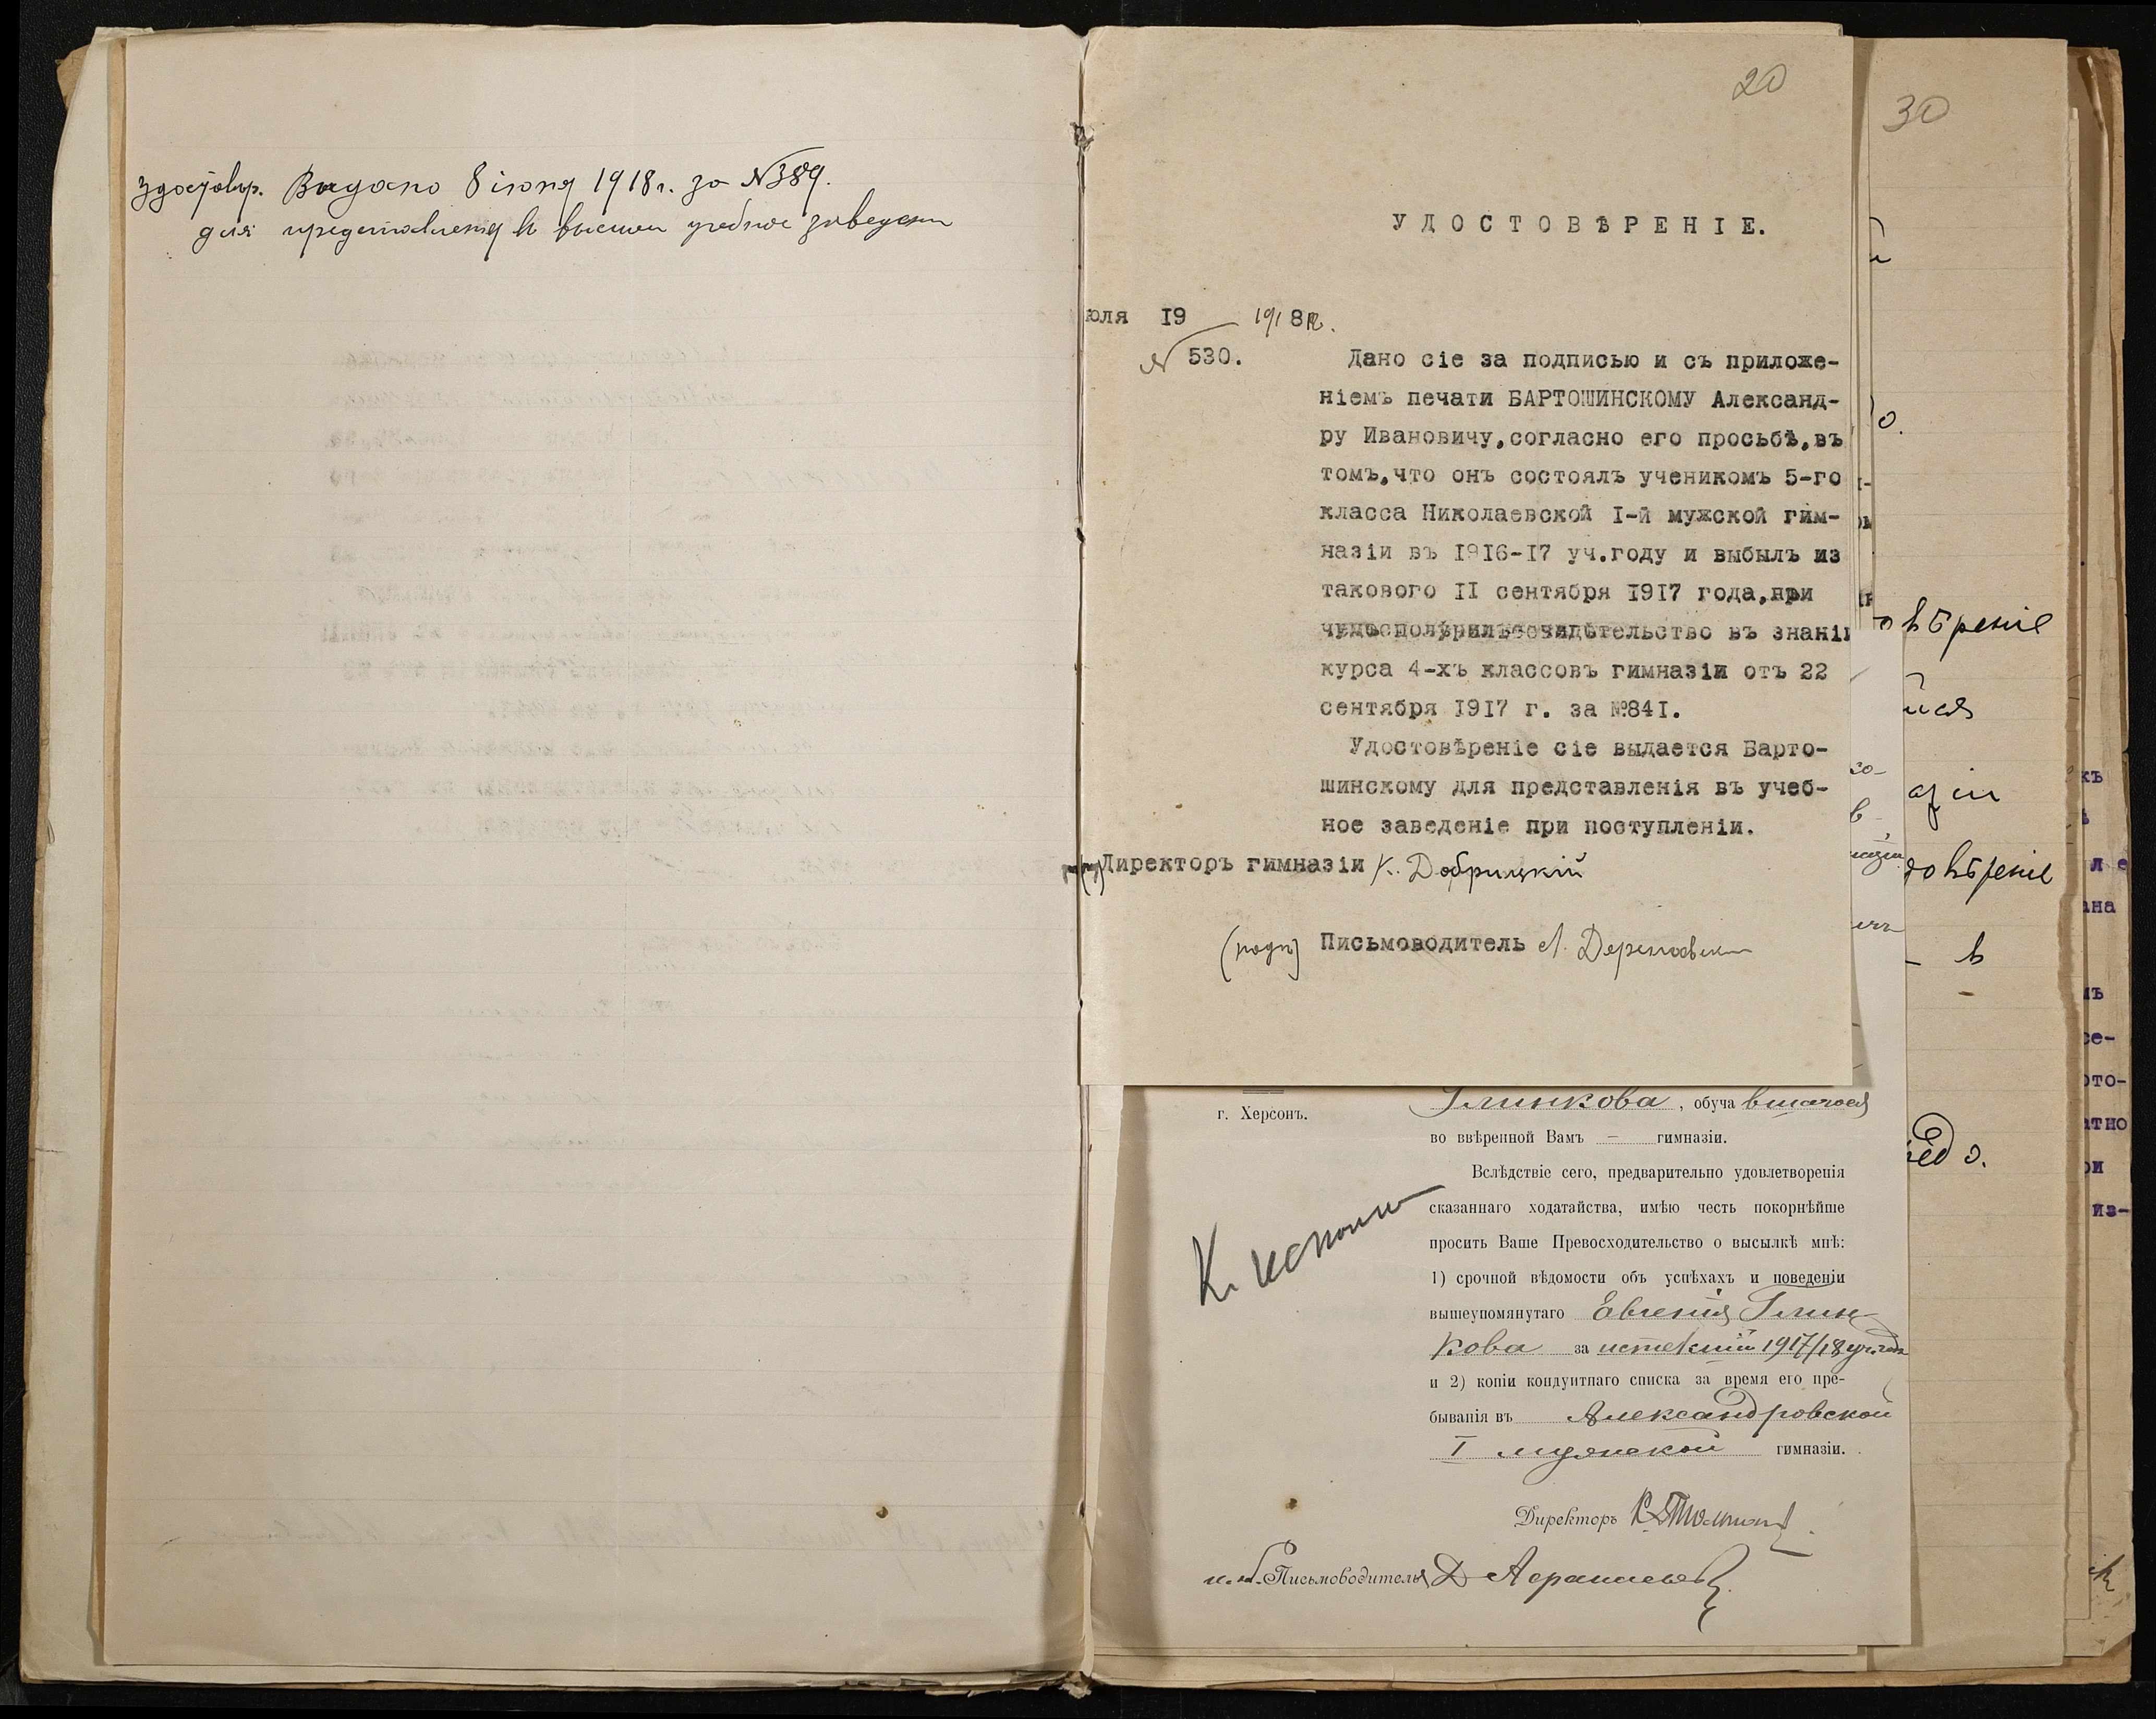 Выдано 8 іюня 1918 г. за №389.
для представленія в высшее учебное заведеніе
20
30
УДОСТОВѢРЕНІЕ.
юля 19 1918 г.
№ 530.
Дано сіе за подписью и съ приложе-
ніемъ печати БАРТОШИНСКОМУ Александ-
ру Ивановичу,согласно его просьбѣ,въ
томъ,что онъ состоялъ ученикомъ 5-го
класса Николаевской I-й мужской гим-
назіи въ 1916-17 уч.году и выбылъ из
такового II сентября 1917 года,при
свидѣтельство въ знані
курса 4-хъ классовъ гимназіи отъ 22
сентября 1917 г. за №841.
Удостовѣреніе сіе выдается Барто-
шинскому для представленія въ учеб-
ное заведеніе при поступленіи.
Директоръ гимназіи К. Добрицкій
(подп) Письмоводитель
г. Херсонъ.
Глинкова, обучавшагося
во ввѣренной Вамъ — гимназіи.
Вслѣдствіе сего, предварительно удовлетворенія
сказаннаго ходатайства, имѣю честь покорнѣйше
просить Ваше Превосходительство о высылкѣ мнѣ:
1) срочной вѣдомости объ успѣхахъ и поведеніи
вышеупомянутаго Евгенія Глин-
кова за истекшій 1917/18 уч. годъ
и 2) копіи кондуитнаго списка за время его пре-
быванія въ Александровской
I мужской гимназіи.
Директоръ
и. об. Письмоводителя
овѣреніе
довѣреніе
в